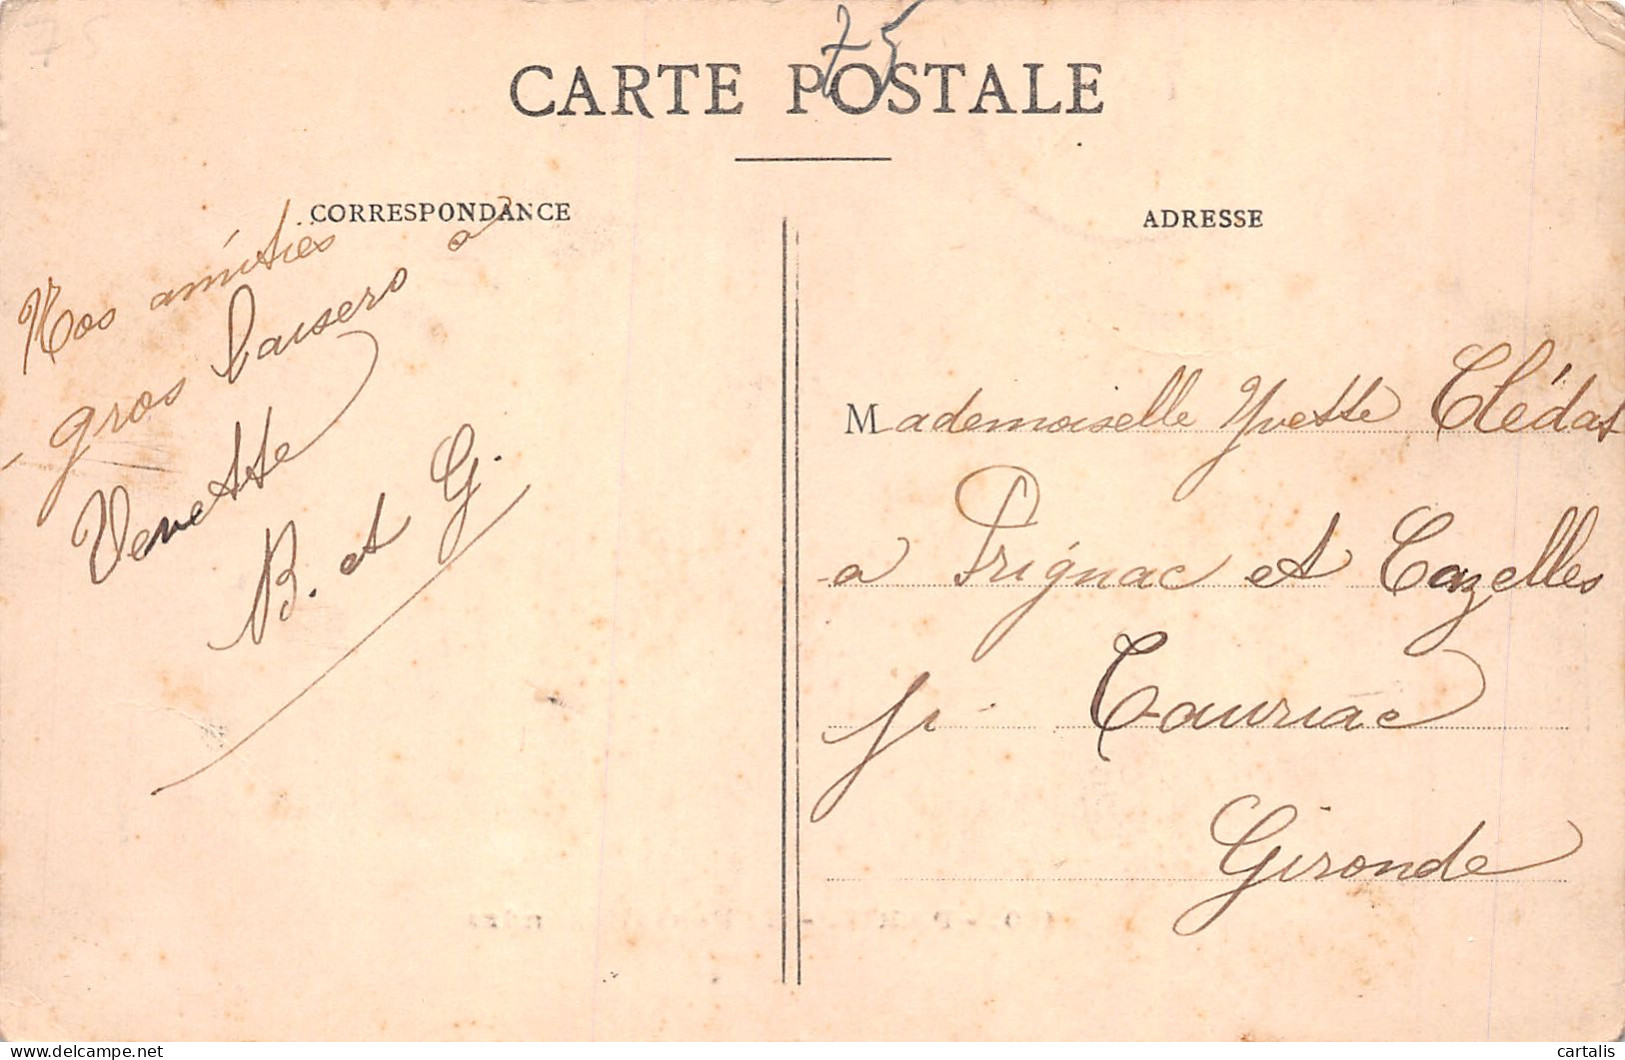 75
75
CARTE POSTALE
CORRESPONDANCE
Nos amitiés
gros baisers a
Venette
B. et G.
ADRESSE
Mademoiselle Yvette Clédat
a Prignac et Cazelles
pr Tauriac
Gironde
delcampe.net
cartalis